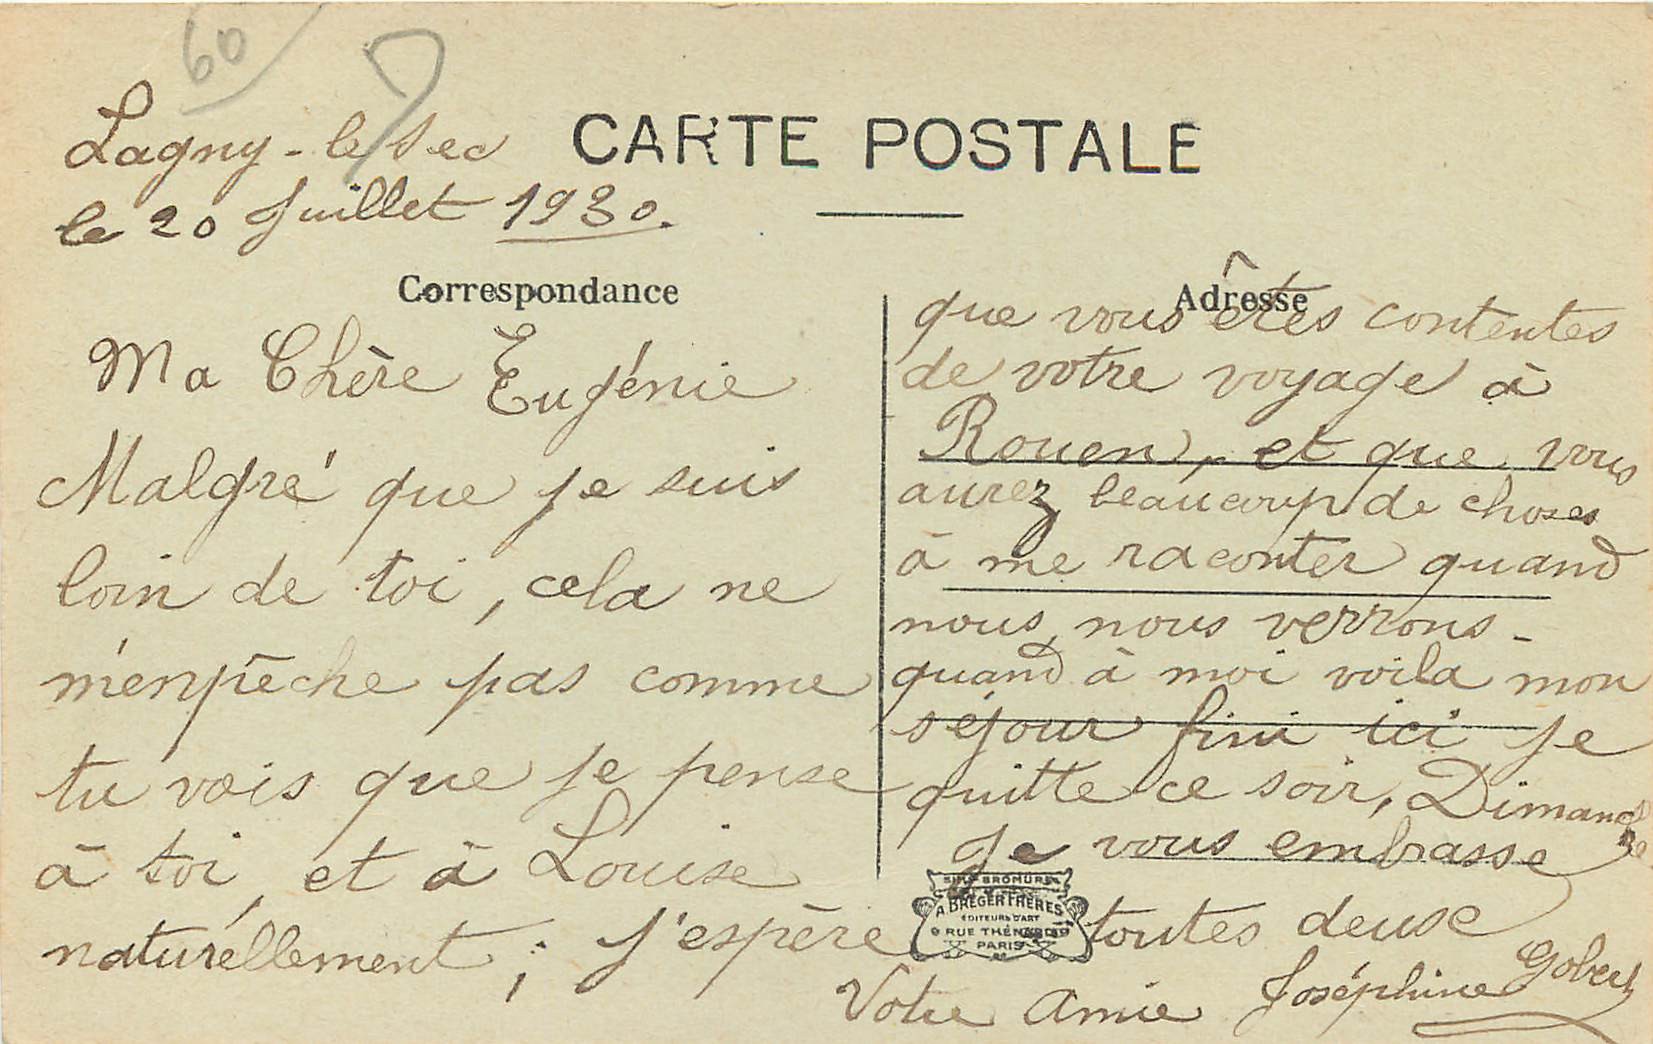 60
Lagny-le Sec
le 20 Juillet 1930.
CARTE POSTALE
Correspondance
Ma Chère Eugénie
Malgré que je suis
loin de toi, cela ne
m'enpêche pas comme
tu vois que je pense
à toi, et à Louise
naturéllement ; j'espère
Adresse
que vous êtes contentes
de votre voyage à
Rouen, et que vous
aurez beaucoup de choses
à me raconter quand
nous, nous verrons -
quand à moi voila mon
séjour fini ici je
quitte ce soir, Dimanche
Je vous embrasse
toutes deuse
Votre Amie Joséphine Gobert
BROMURE
A. BREGER FRÈRES
EDITEURS D'ART
9 RUE THÉNARD 9
PARIS